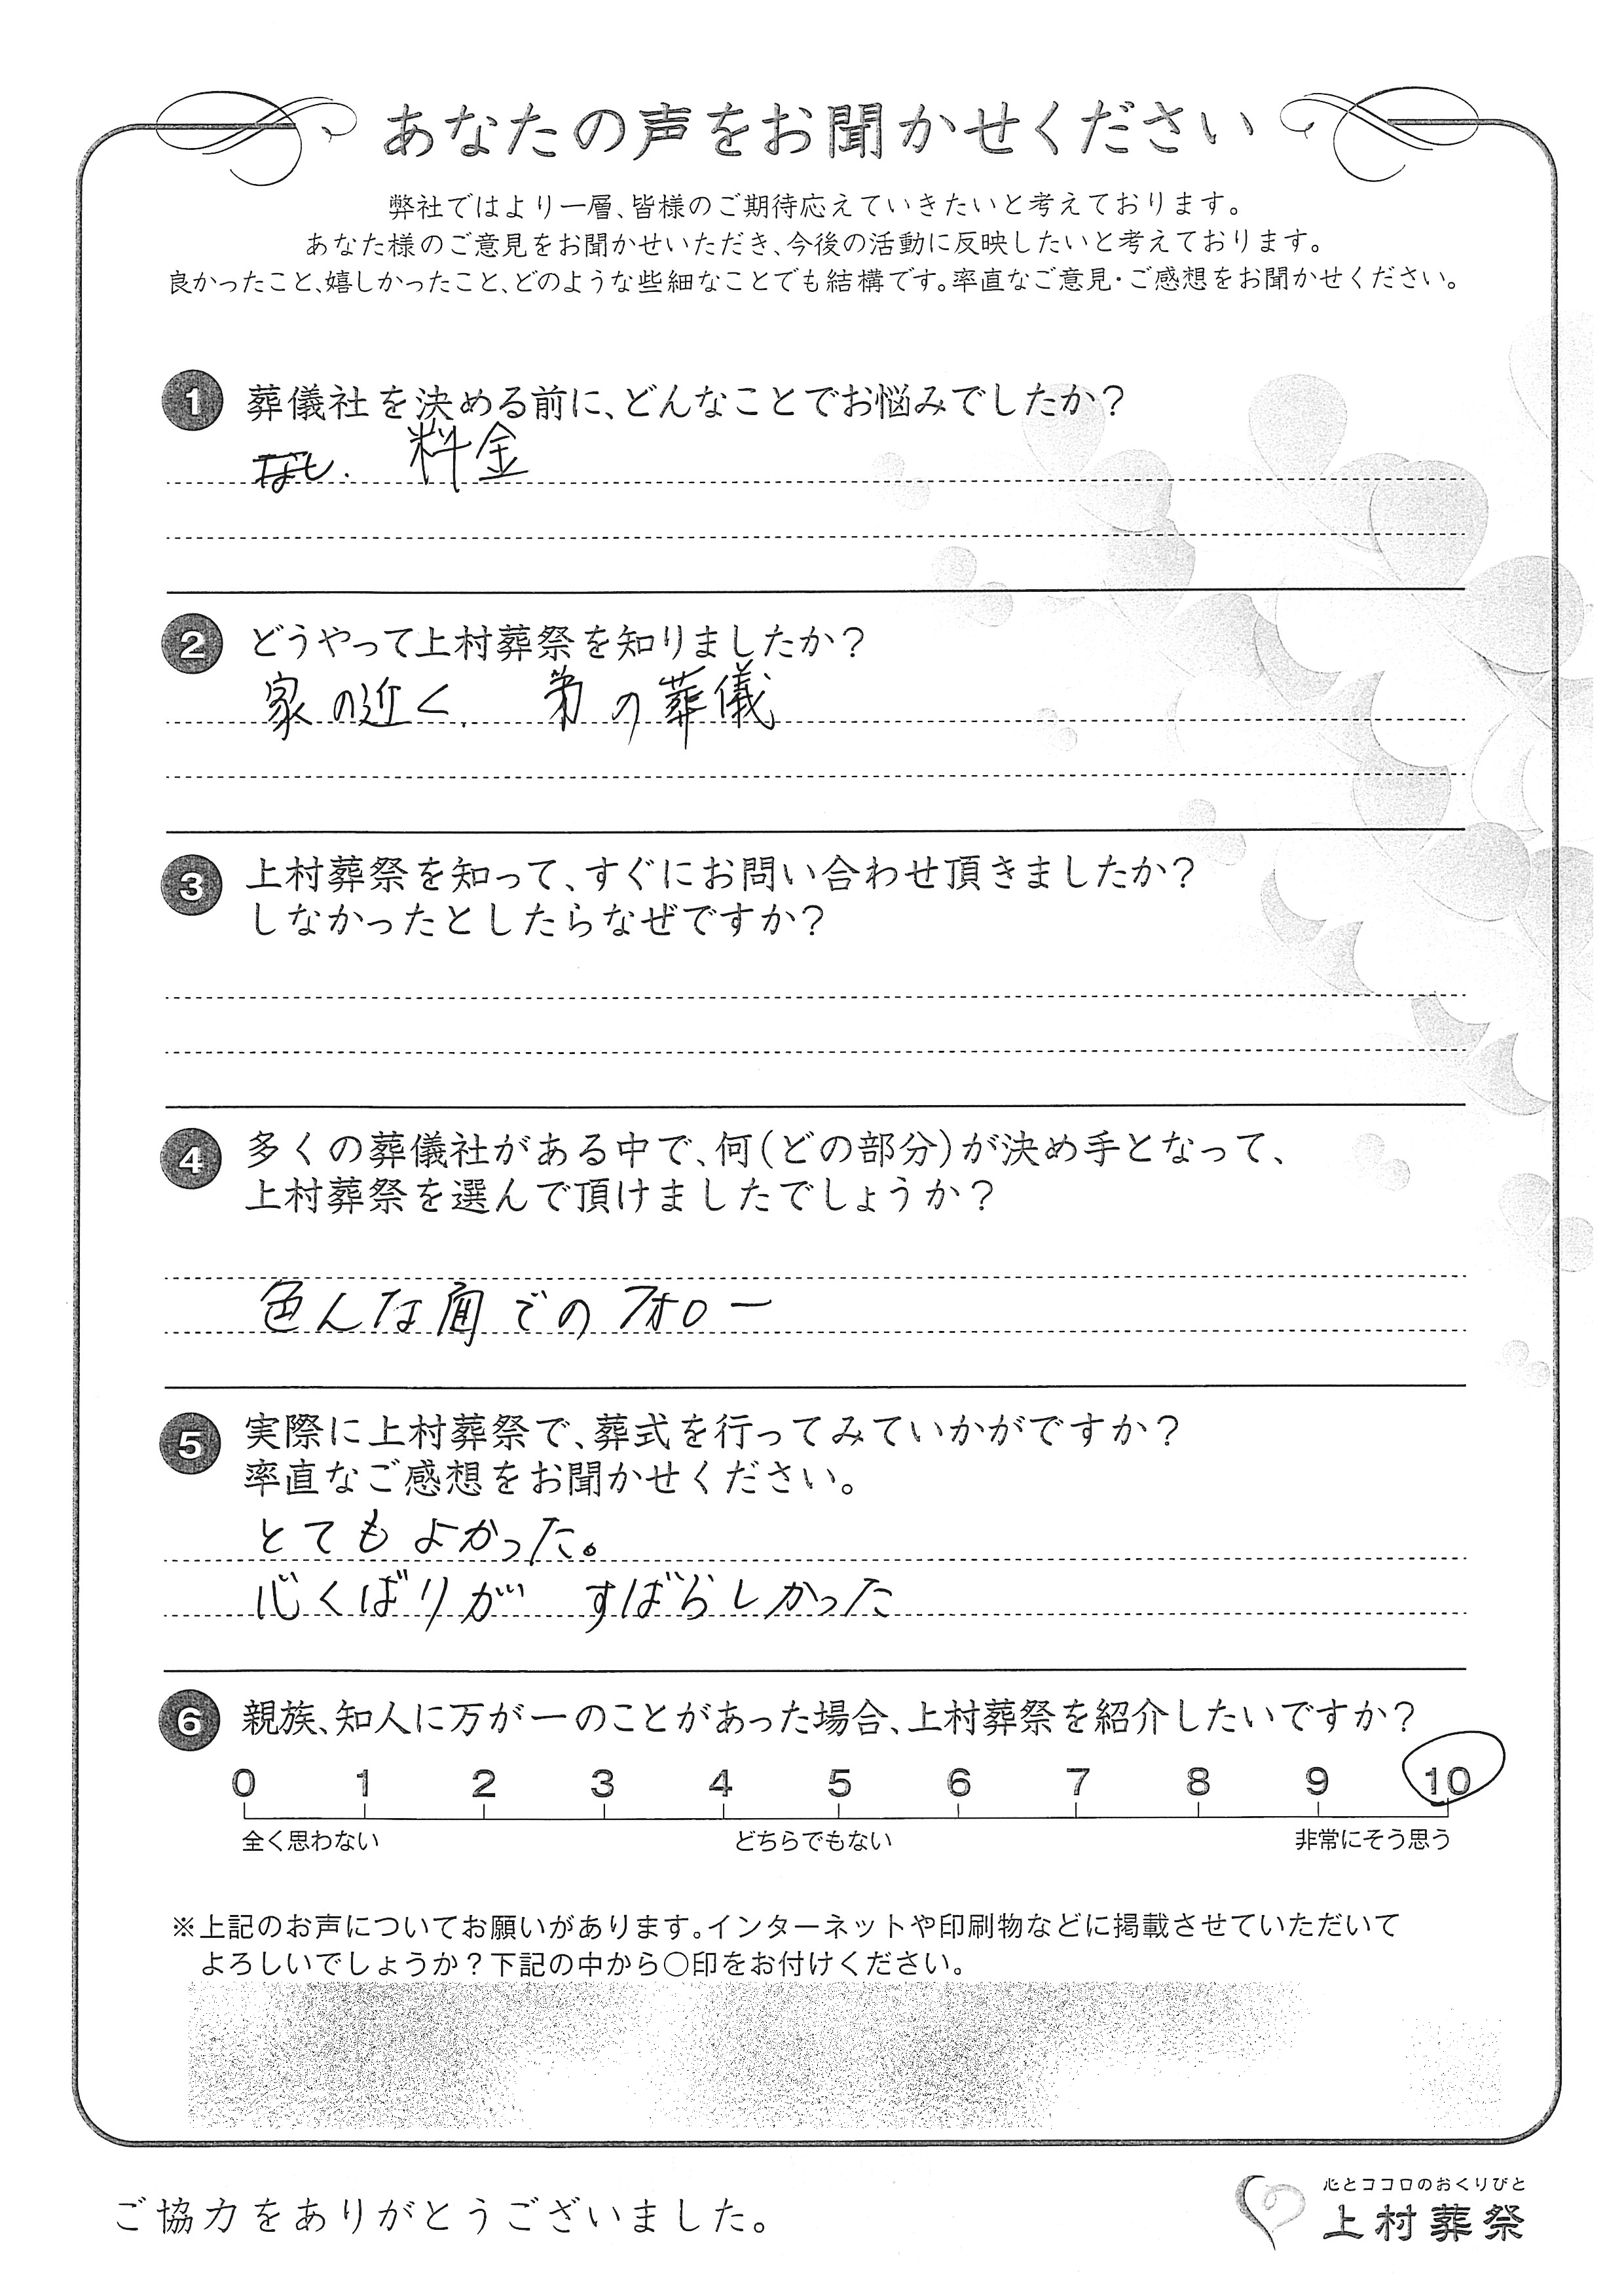 あなたの声をお聞かせください
弊社ではより一層、皆様のご期待応えていきたいと考えております。
あなた様のご意見をお聞かせいただき、今後の活動に反映したいと考えております。
良かったこと、嬉しかったこと、どのような些細なことでも結構です。率直なご意見・ご感想をお聞かせください。
1 葬儀社を決める前に、どんなことでお悩みでしたか?
なし. 料金
2 どうやって上村葬祭を知りましたか?
家の近く. 弟の葬儀
3 上村葬祭を知って、すぐにお問い合わせ頂きましたか?
しなかったとしたらなぜですか?
4 多くの葬儀社がある中で、何(どの部分)が決め手となって、
上村葬祭を選んで頂けましたでしょうか?
色んな面でのフォロー
5 実際に上村葬祭で、葬式を行ってみていかがですか?
率直なご感想をお聞かせください。
とてもよかった。
心くばりが すばらしかった
6 親族、知人に万が一のことがあった場合、上村葬祭を紹介したいですか?
0 1 2 3 4 5 6 7 8 9 10
全く思わない どちらでもない 非常にそう思う
※上記のお声についてお願いがあります。インターネットや印刷物などに掲載させていただいて
よろしいでしょうか?下記の中から〇印をお付けください。
ご協力をありがとうございました。
心とココロのおくりびと
上村葬祭